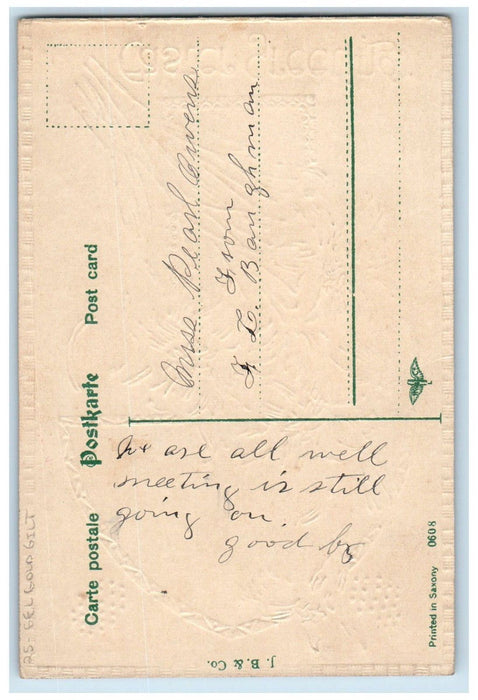 Carte postale Postkarte Post card
Miss Pearl Owens
From
F. L. Baughman
We are all well
meeting is still
going on.
good by
J. B. & Co.
Printed in Saxony 0608
Easter Greeting